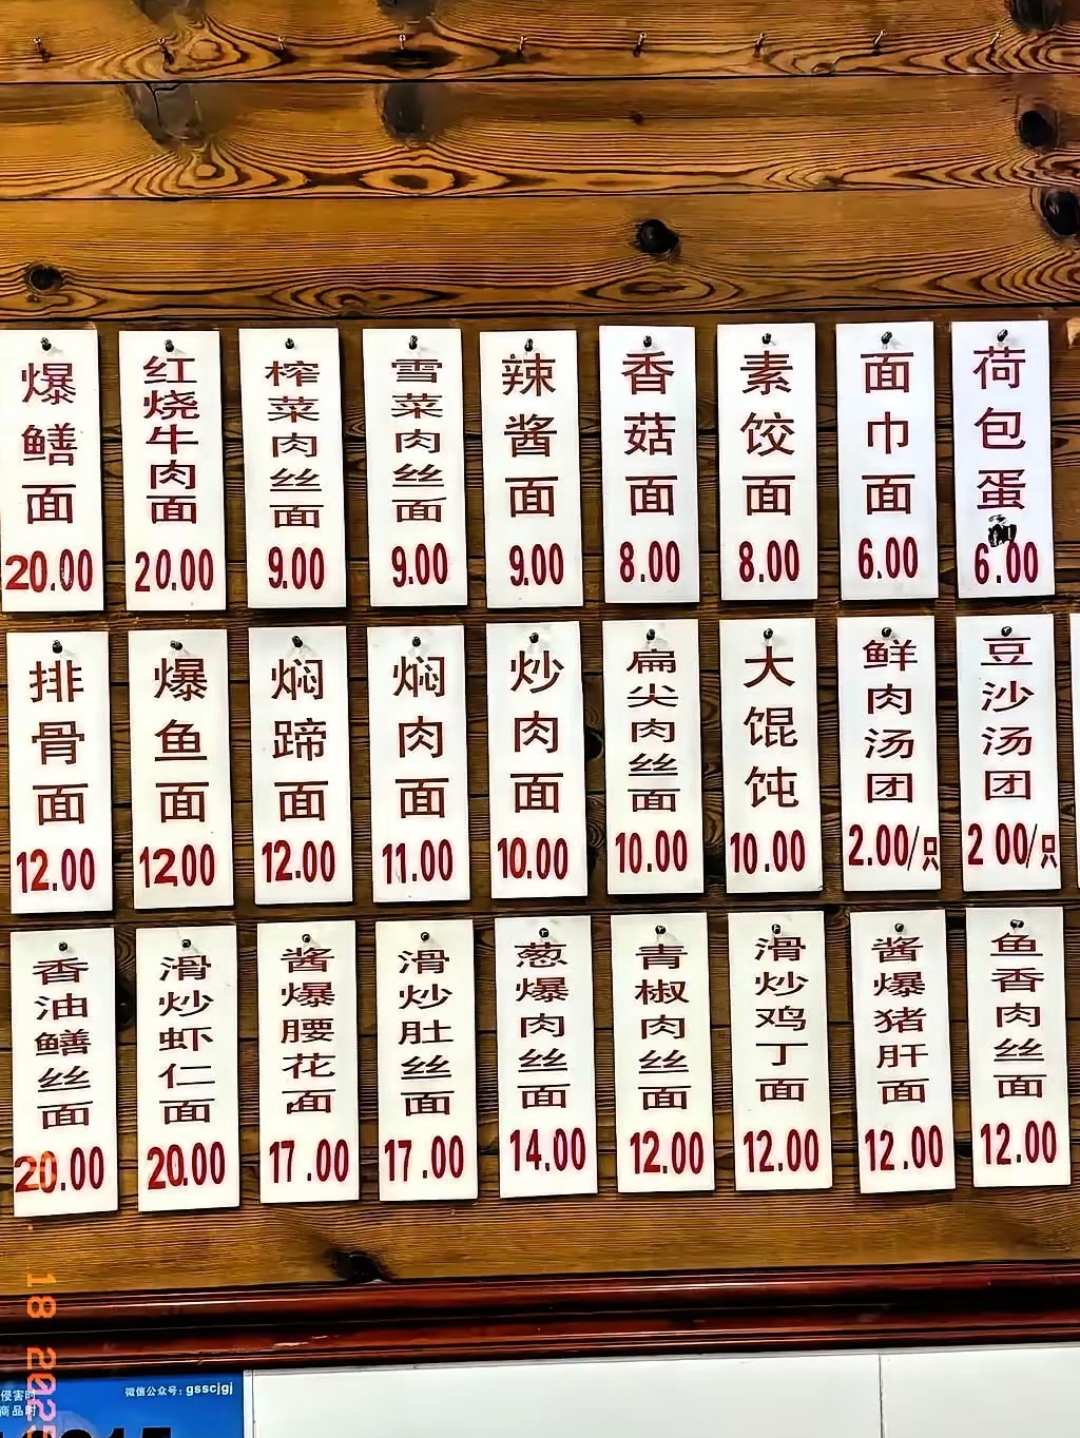 爆鳝面 20.00
红烧牛肉面 20.00
榨菜肉丝面 9.00
雪菜肉丝面 9.00
辣酱面 9.00
香菇面 8.00
素饺面 8.00
面巾面 6.00
荷包蛋 6.00
排骨面 12.00
爆鱼面 1200
焖蹄面 12.00
焖肉面 11.00
炒肉面 10.00
扁尖肉丝面 10.00
大馄饨 10.00
鲜肉汤团 2.00/只
豆沙汤团 2 00/只
香油鳝丝面 20.00
滑炒虾仁面 20.00
酱爆腰花面 17.00
滑炒肚丝面 17.00
葱爆肉丝面 14.00
青椒肉丝面 12.00
滑炒鸡丁面 12.00
酱爆猪肝面 12.00
鱼香肉丝面 12.00
18 2025
侵害时
商品时
微信公众号：gsscjgj